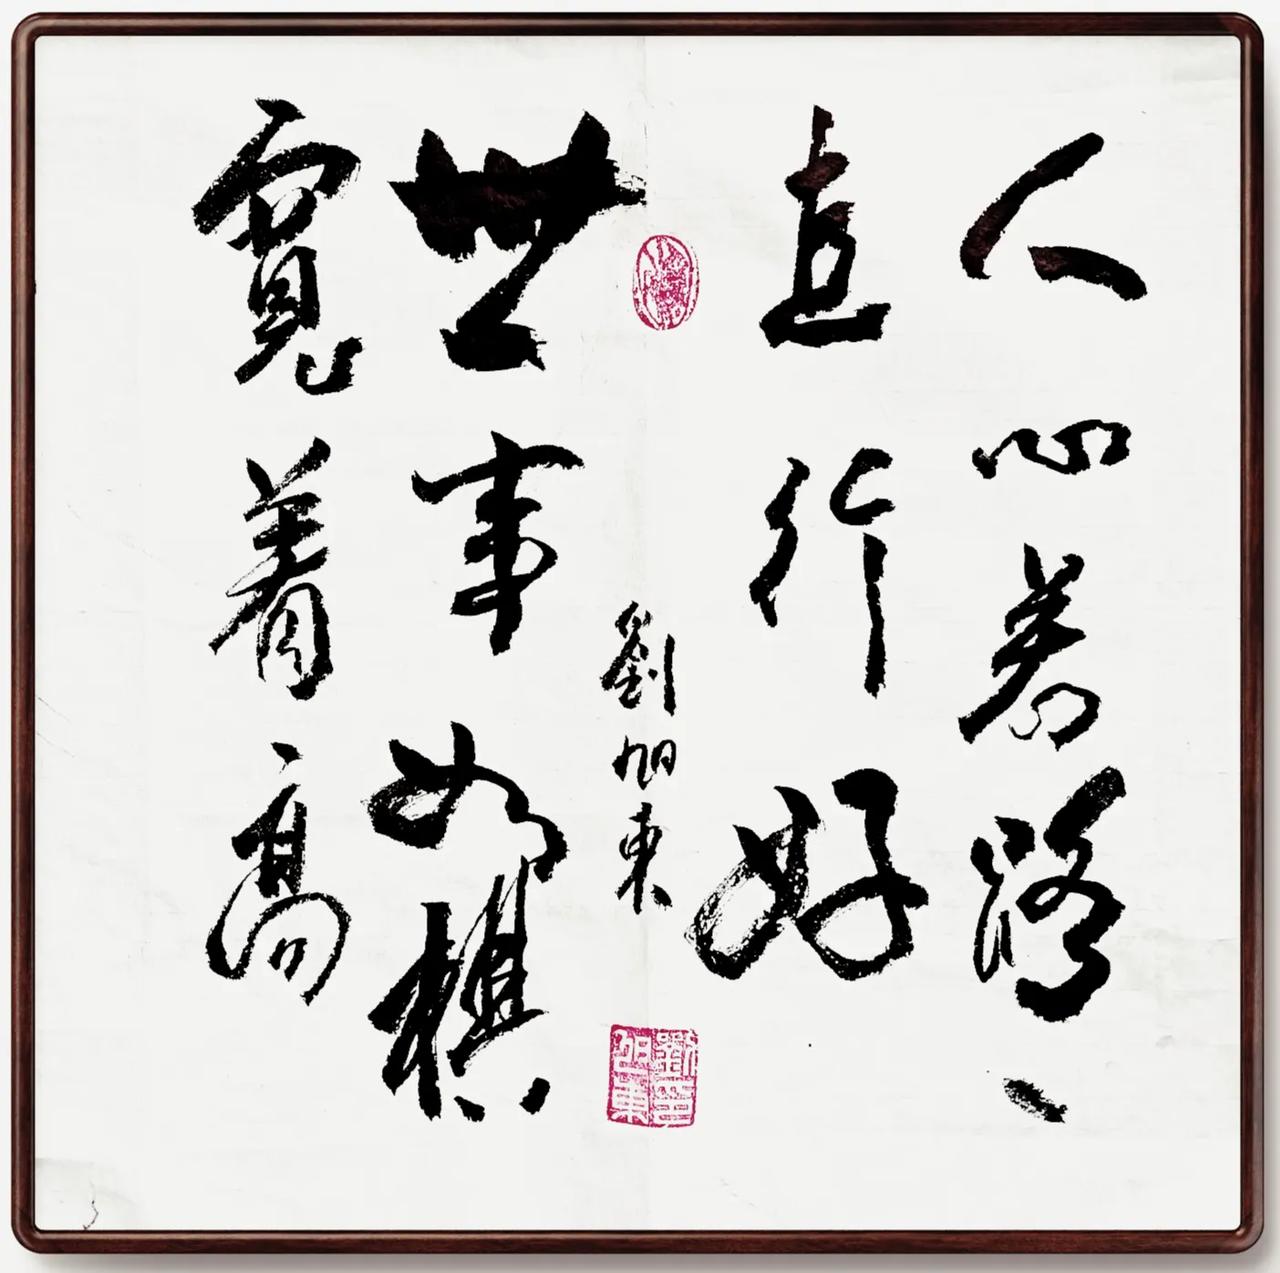 人心若路、
直行好
劉旭東
世事如棋
寬着高
劉印旭東